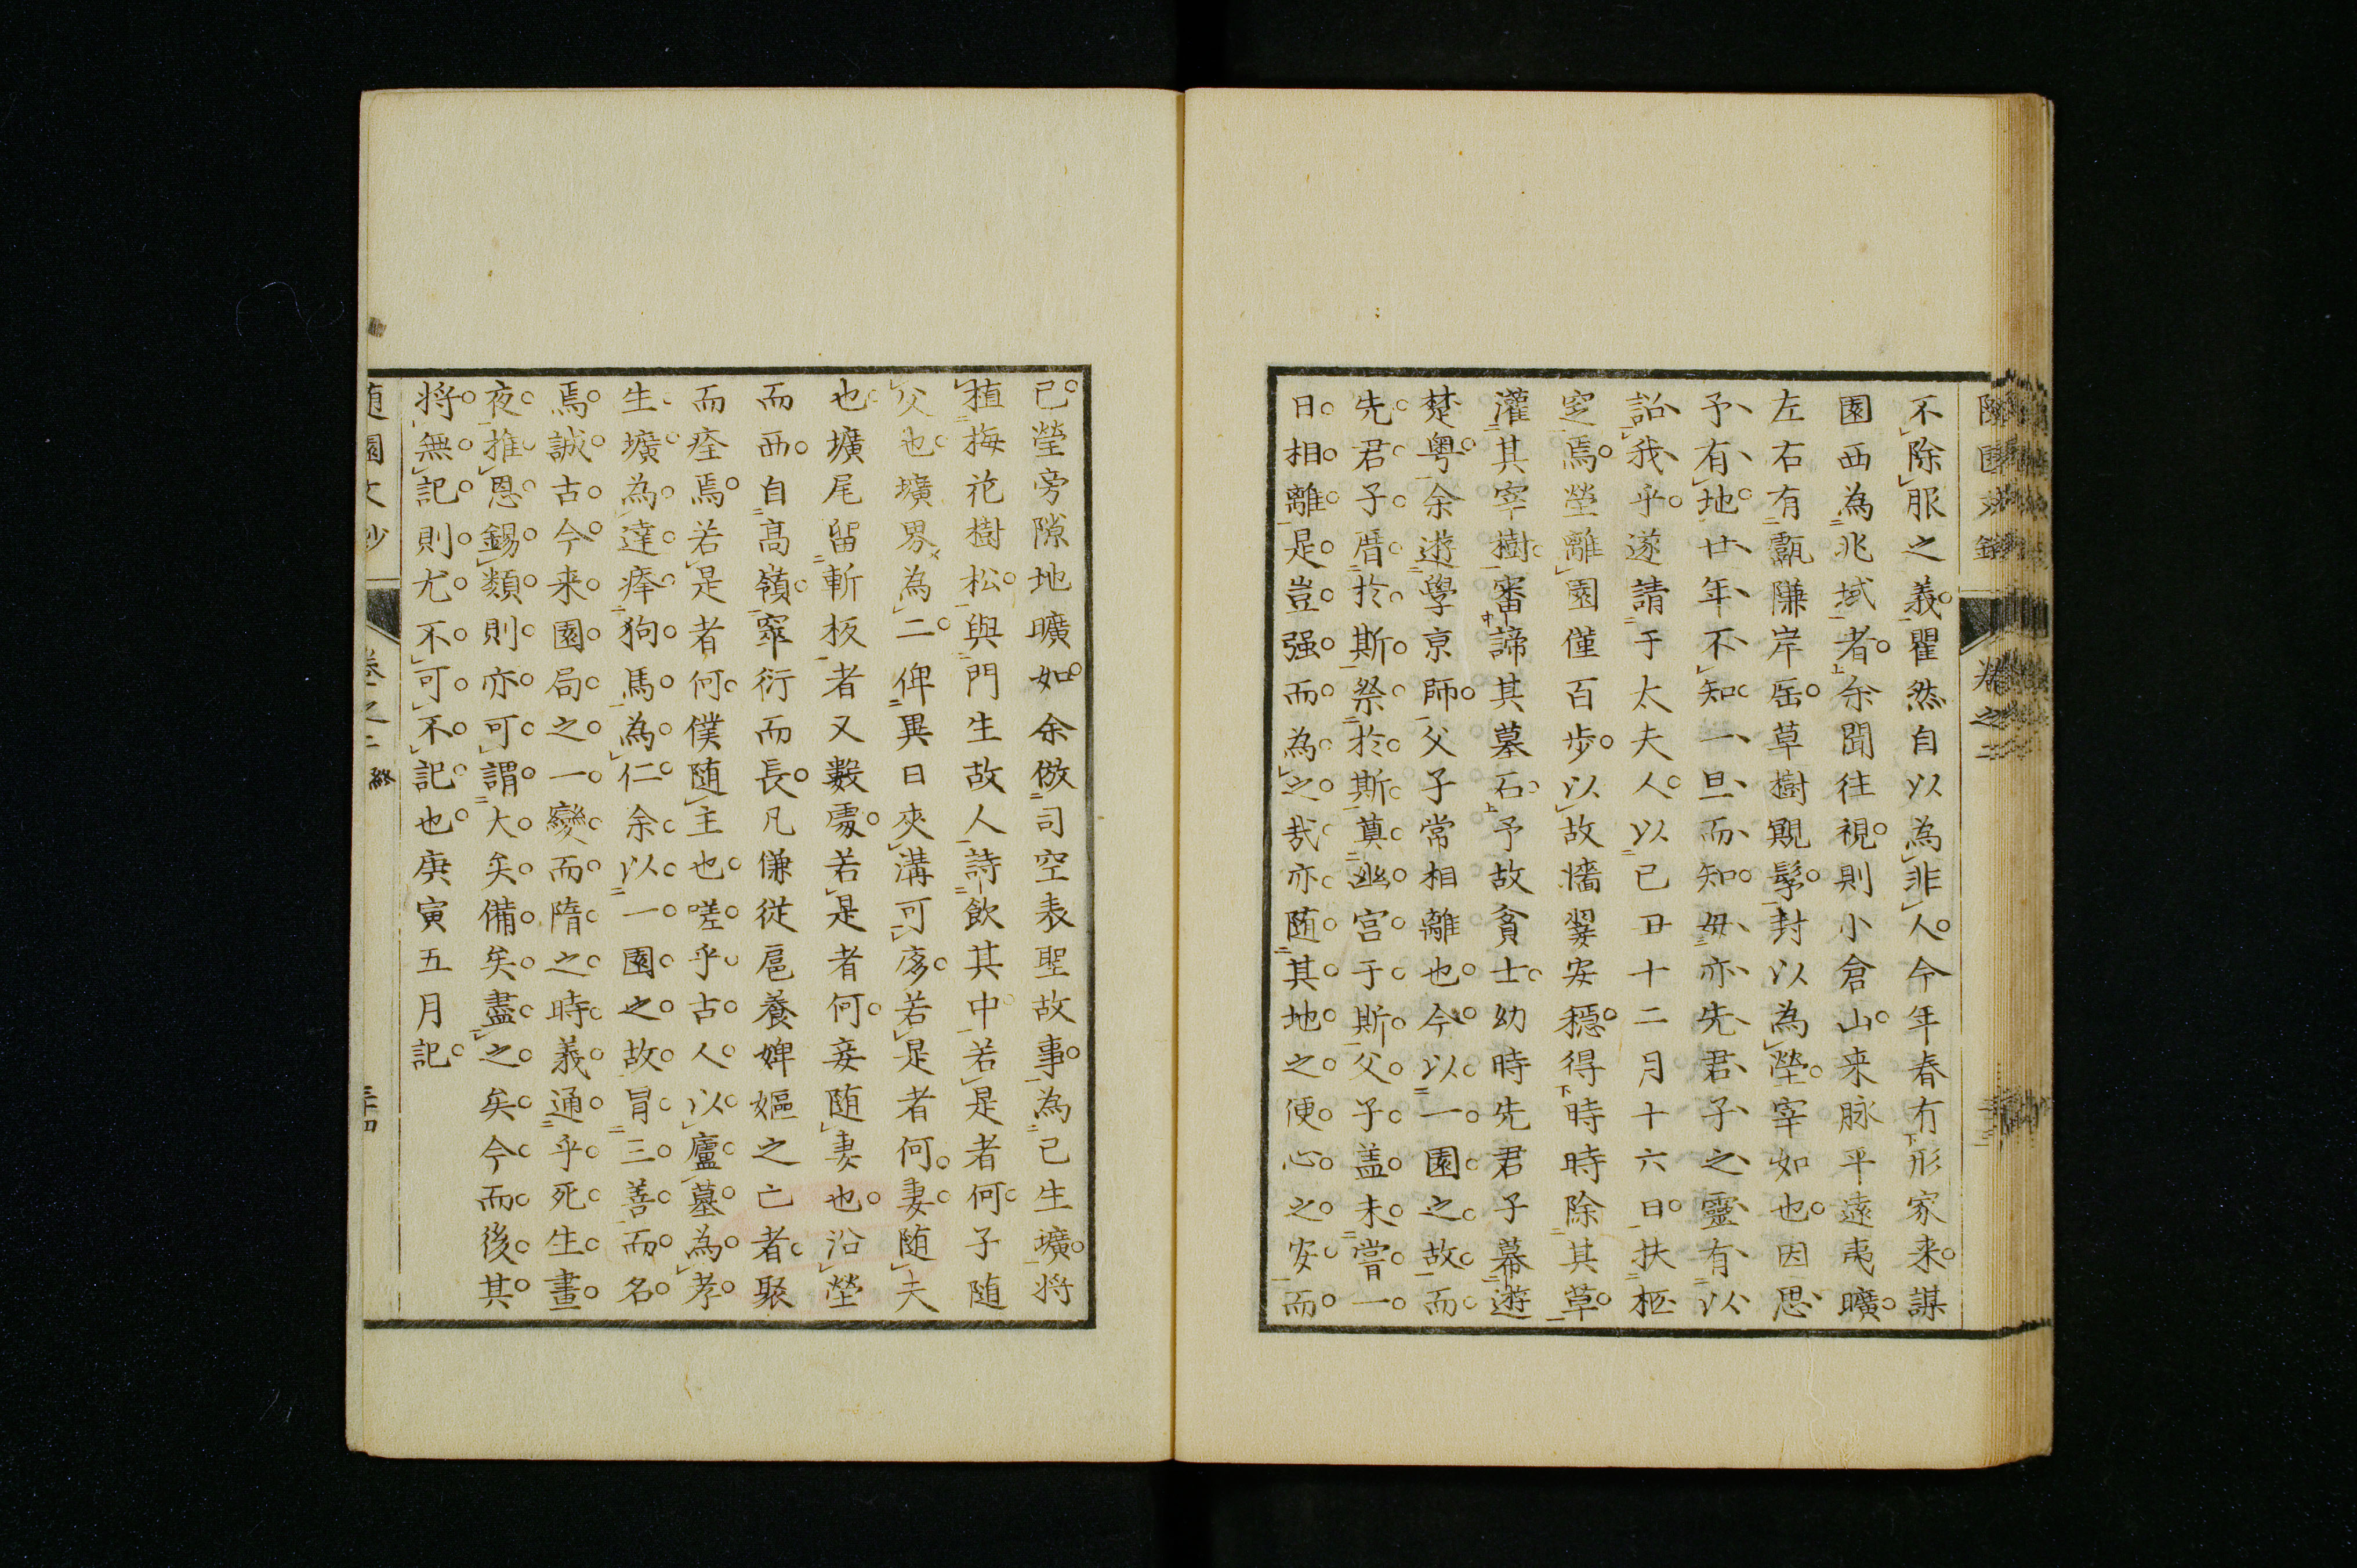 不除服之義瞿然自以為非人今年春有形家来謀
園西為兆域者余聞往視則小倉山来脉平遠夷曠
左右有甗隒岸厒草樹覭髳封以為塋宰如也因思
予有地廿年不知一旦而知毋亦先君子之靈有以
詔我乎遂請于太夫人以己丑十二月十六日扶柩
窆焉塋離園僅百歩以故墻翣安穩得時時除其草
灌其宰樹審諦其墓石予故貧士幼時先君子幕遊
楚粤余遊學京師父子常相離也今以一園之故而
先君子厝於斯祭於斯奠幽宫于斯父子盖未嘗一
日相離是豈强而為之哉亦随其地之便心之安而
已塋旁隙地曠如余倣司空表聖故事為己生壙将
植梅花樹松與門生故人詩飲其中若是者何子随
父也壙界為二俾異日夾溝可㢋若是者何妻随夫
也壙尾留斬板者又數處若是者何妾随妻也沿塋
而西自高嶺窣衍而長凡傔従扈養婢嫗之亡者聚
而痊焉若是者何僕随主也嗟乎古人以廬墓為孝
生壙為達瘞狗馬為仁余以一園之故冒三善而名
焉誠古今来園局之一變而隋之時義通乎死生晝
夜推恩錫類則亦可謂大矣備矣盡之矣今而後其
将無記則尤不可不記也庚寅五月記
随園文鈔
卷之二終
三十四